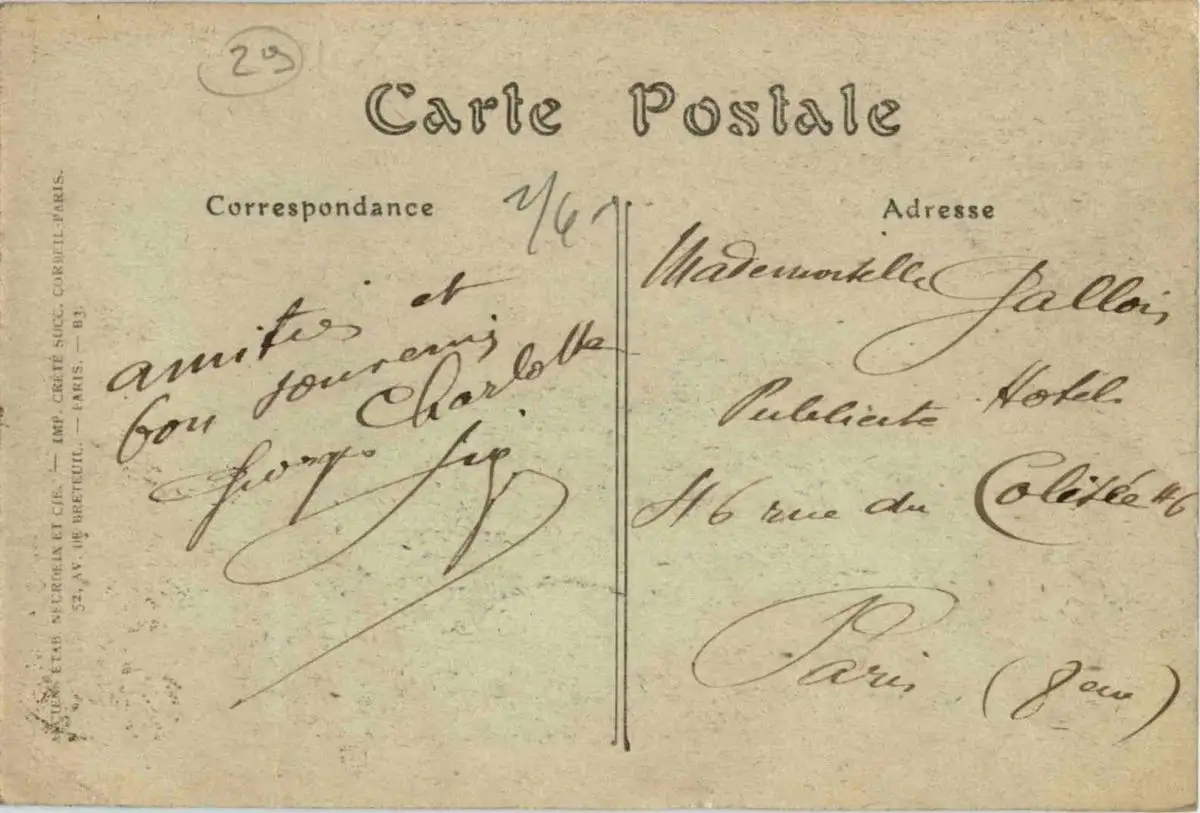 29
Carte Postale
Correspondance
2/6
Adresse
amitiés et
bon souvenir
Charlotte
Georges
Mademoiselle Gallois
Publicité Hotel
46 rue du Colisée 46
Paris (8eme)
ANCIENS ETAB. NEURDEIN ET CIE. — IMP. CRÉTÉ SUCC. CORBEIL-PARIS.
52, AV. DE BRETEUIL. — PARIS. — B3.